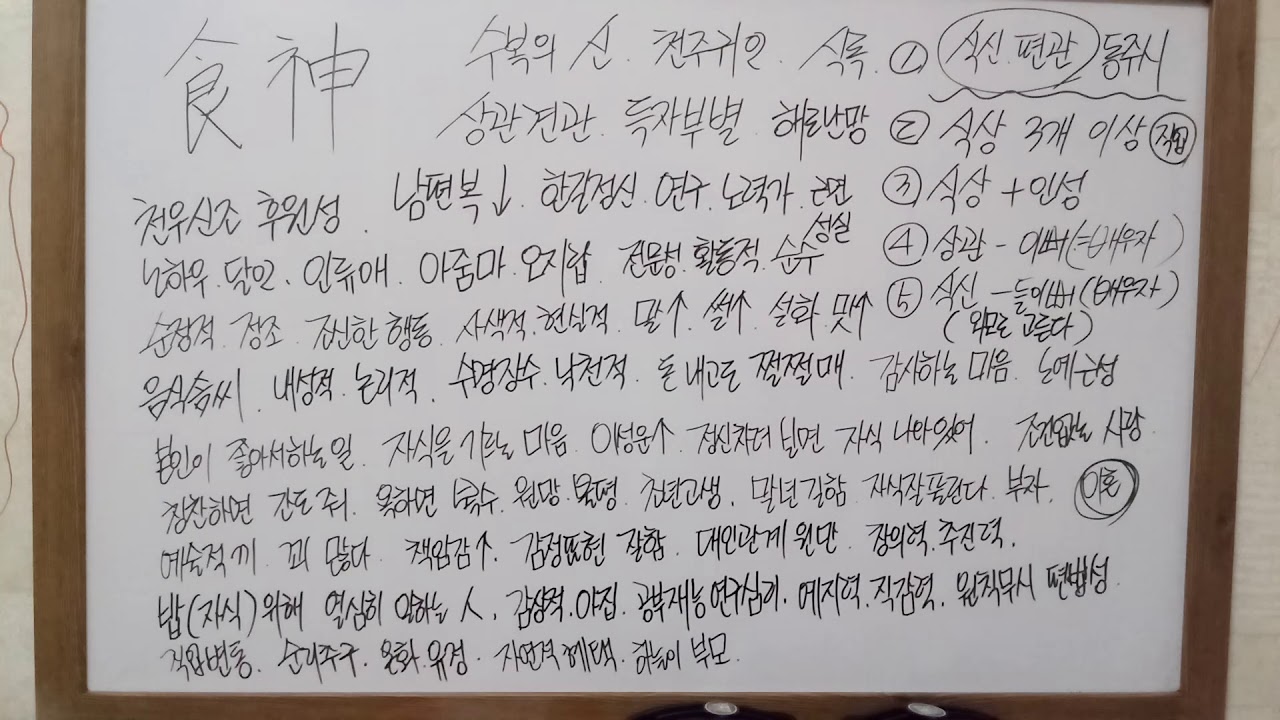 食神
수복의 신. 천주귀인. 식록. ① 식신 편관 동주시
상관견관. 득자부별. 해로난망 ② 식상 3개 이상 직업
천우신조 후원성. 남편복↓ 한길정신. 연구. 노력가. 근면 ③ 식상 + 인성
성실
노하우. 달인. 인류애. 아줌마. 오지랍. 전문성. 활동적. 순수 ④ 상관 - 이뻐(=배우자)
순정적. 정조. 점신한 행동. 사색적. 현실적. 말↑. 썰↑. 설화. 멋↑ ⑤ 식신 - 들이뻐(배우자)
(외모로 고른다)
음식솜씨. 내성적. 논리적. 수명장수. 낙천적. 돈 내고도 쩔쩔매. 감사하는 마음. 노예근성
본인이 좋아서하는일. 자식을 기르는 마음. 이성운↑ 정신차려 보면 자식 나와있어. 조건없는 사랑.
칭찬하면 간도 줘. 욕하면 복수. 원망. 불평. 초년고생. 말년길함. 자식잘풀린다. 부자. 이혼
예술적끼. 꾀 많다. 책임감↑. 감정표현 잘함. 대인관계 원만. 창의력. 추진력.
밥(자식)위해 열심히 일하는 사람. 감상적. 아집. 공부재능 연구심리. 예지력. 직감력. 원칙무시 편법성.
직업변동. 순리추구. 온화. 유정. 자연적 혜택. 하늘이 부모.